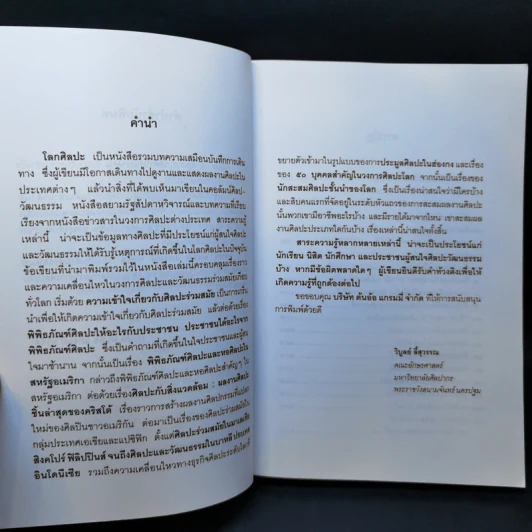 คำนำ
โลกศิลปะ เป็นหนังสือรวมบทความเสมือนบันทึกการเดิน
ทาง ซึ่งผู้เขียนมีโอกาสเดินทางไปดูงานและแสดงผลงานศิลปะใน
ประเทศต่างๆ แล้วนำสิ่งที่ได้พบเห็นมาเขียนในคอลัมน์ศิลป-
วัฒนธรรม หนังสือสยามรัฐสัปดาหวิจารณ์และบทความที่เรียบ
เรียงจากหนังสือข่าวสารในวงการศิลปะต่างประเทศ สาระความรู้
เหล่านี้ น่าจะเป็นข้อมูลทางศิลปะที่มีประโยชน์แก่ผู้สนใจศิลปะ
และวัฒนธรรมให้ได้รับรู้เหตุการณ์ที่เกิดขึ้นในโลกศิลปะในปัจจุบัน
ข้อเขียนที่นำมาพิมพ์รวมไว้ในหนังสือเล่มนี้ครอบคลุมเรื่องราว
และความเคลื่อนไหวในวงการศิลปะและวัฒนธรรมร่วมสมัยเกือบ
ทั่วโลก เริ่มด้วย ความเข้าใจเกี่ยวกับศิลปะร่วมสมัย เป็นการเริ่ม
นำเพื่อให้เกิดความเข้าใจเกี่ยวกับศิลปะร่วมสมัย แล้วต่อด้วยเรื่อง
พิพิธภัณฑ์ศิลปะให้อะไรกับประชาชน ประชาชนได้อะไรจาก
พิพิธภัณฑ์ศิลปะ ซึ่งเป็นคำถามที่เกิดขึ้นในใจประชาชนและผู้สน
ใจมาช้านาน จากนั้นเป็นเรื่อง พิพิธภัณฑ์ศิลปะและหอศิลปะใน
สหรัฐอเมริกา กล่าวถึงพิพิธภัณฑ์ศิลปะและหอศิลปะสำคัญๆ ใน
สหรัฐอเมริกา ต่อด้วยเรื่องศิลปะกับสิ่งแวดล้อม : ผลงานศิลปะ
ชิ้นล่าสุดของคริสโต้ เรื่องราวการสร้างผลงานศิลปกรรมที่แปลก
ใหม่ของศิลปินชาวอเมริกัน ต่อมาเป็นเรื่องของศิลปะร่วมสมัยใน
กลุ่มประเทศเอเชียและแปซิฟิก ตั้งแต่ศิลปะร่วมสมัยในมาเลเซีย
สิงคโปร์ ฟิลิปปินส์ จนถึงศิลปะและวัฒนธรรมในบาหลี ประเทศ
อินโดนีเซีย รวมถึงความเคลื่อนไหวทางธุรกิจศิลปะระดับโลกที่
ขยายตัวเข้ามาในรูปแบบของการประมูลศิลปะในฮ่องกง และเรื่อง
ของ ๕๐ บุคคลสำคัญในวงการศิลปะโลก จากนั้นเป็นเรื่องของ
นักสะสมศิลปะชั้นนำของโลก ซึ่งเป็นเรื่องน่าสนใจว่ามีใครบ้าง
และสิบคนแรกที่จัดอยู่ในระดับหัวแถวของการสะสมผลงานศิลปะ
นั้นพวกเขามีอาชีพอะไรบ้าง และมีรายได้มาจากไหน เขาสะสมผล
งานศิลปะประเภทใดกันบ้าง เรื่องเหล่านี้น่าสนใจทั้งสิ้น
สาระความรู้หลากหลายเหล่านี้ น่าจะเป็นประโยชน์แก่
นักเรียน นิสิต นักศึกษา และประชาชนผู้สนใจศิลปะวัฒนธรรม
บ้าง หากมีข้อผิดพลาดใดๆ ผู้เขียนยินดีรับคำท้วงติงเพื่อให้
เกิดความรู้ที่ถูกต้องต่อไป
ขอขอบคุณ บริษัท ต้นอ้อ แกรมมี่ จำกัด ที่ให้การสนับสนุน
การพิมพ์ด้วยดี
วิบูลย์ ลี้สุวรรณ
คณะอักษรศาสตร์
มหาวิทยาลัยศิลปากร
พระราชวังสนามจันทร์ นครปฐม